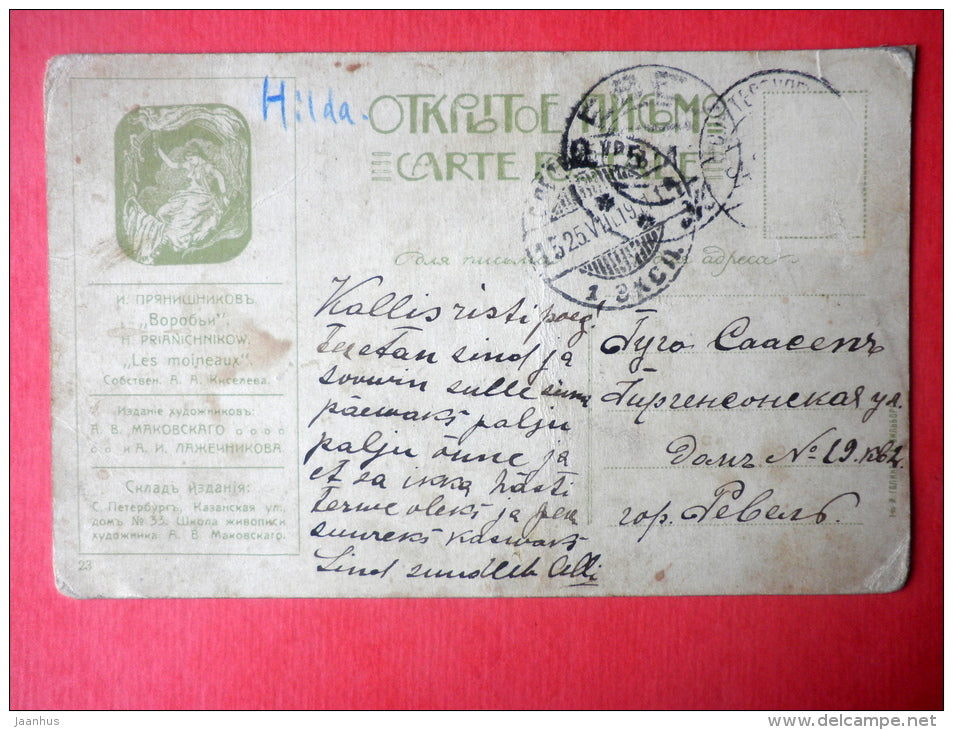 Hilda.
ОТКРЫТОЕ ПИСЬМО
CARTE POSTALE
Для письма
адреса
И. ПРЯНИШНИКОВЪ
„Воробьи".
H. PRIANICHNIKOW.
„Les moineaux".
Собствен. А. А. Киселева.
Изданіе художниковъ:
А. В. МАКОВСКАГО
и А. И. ЛАЖЕЧНИКОВА.
Складъ изданія:
С. Петербургъ, Казанская ул.,
домъ № 33. Школа живописи
художника А. В. Маковскаго.
23
РЕВЕЛ
1 ЭКСП.
Kallis risti poeg!
Teretan sind ja
soowin sulle sinu
päewaks palju
palju õnne ja
et sa ikka hästi
terwe oleks ja
suureks kaswaks
Sind suudleb Olli
Гуго Саасепъ
Гиргенсонская ул.
Домъ № 19. кв 2.
гор. Ревель.
Jaanhus
www.delcampe.net